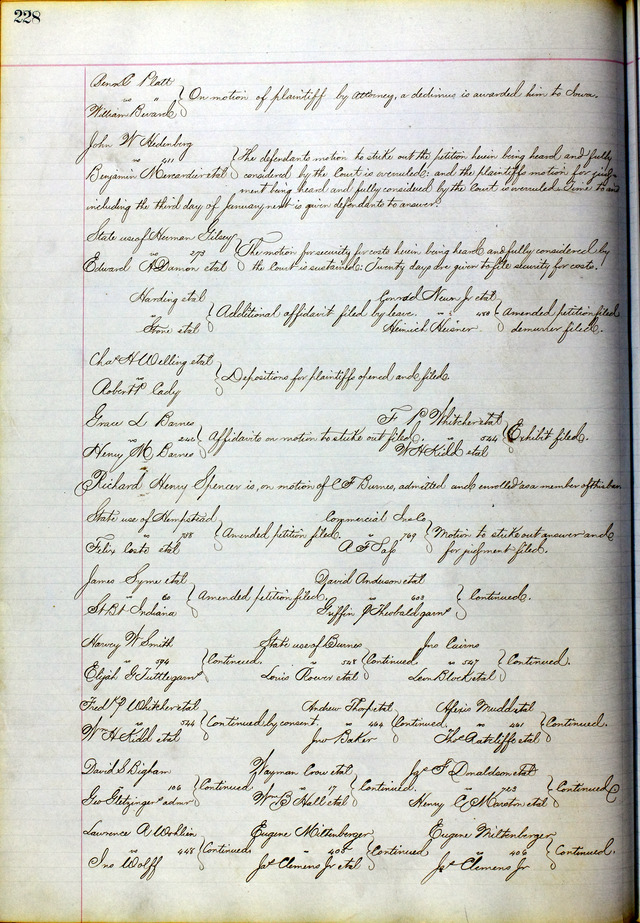 228
Benn C Platt
vs } On motion of plaintiff by Attorney, a dedimus is awarded him to Iowa.
William Bevard
John W Hedenberg
vs 411 } The defendants motion to strike out the petition herein being heard and fully
Benjamin Mercardier et al considered by the Court is overruled: and the plaintiffs motion for judg-
ment being heard and fully considered by the Court is overruled. Time to and
including the third day of January next is given defendants to answer.
State use of Herman Gelsey
vs 273 } The motion for security for costs herein being heard and fully considered by
Edward A Damon et al the Court is sustained: Twenty days are given to file security for costs.
Harding et al Conrad Neun Jr et al
vs } Additional affidavit filed by leave. vs 450 } Amended petition filed
Stone et al Heinrich Heisner demurrer filed.
Chas H Welling et al
vs } Depositions for plaintiffs opened and filed.
Robert P Cady
Grace L Barnes F N Whitcher et al
vs 246 } Affidavits on motion to strike out filed. vs 544 } Exhibit filed.
Henry M Barnes W H Kidd et al
Richard Henry Spencer is, on motion of C F Burnes, admitted and enrolled as a member of this bar
State use of Hempstead Commercial Ins Co
vs 788 } Amended petition filed. vs 769 } Motion to strike out answer and
Felix Coste et al A F Sass for judgment filed.
James Syme et al David Anderson et al
vs 60 } Amended petition filed. vs 603 } Continued.
St Bt Indiana Griffin & Theobald garns
Harvey W Smith State use of Burnes Jno Cairns
vs 594 } Continued. vs 545 } Continued. vs 547 } Continued.
Elijah G Tuttle garns Louis Rover et al Lam Block et al
Fredk P Whitcher et al Andrew Thorp et al Alexis Mudd et al
vs 544 } Continued by consent. vs 404 } Continued. vs 401 } Continued.
W H Kidd et al Jno Baker Thos Ratcliffe et al
David S Bigham Wayman Crow et al Jas S Donaldson et al
vs 106 } Continued vs 17 } Continued. vs 723 } Continued
Geo Gletzinger admr Wm B Hall et al Henry C Marstin et al
Lawrence A Wohlien Eugene Miltenberger Eugene Miltenberger
vs 445 } Continued. vs 405 } Continued vs 406 } Continued.
Jno Wolff Jas Clemens Jr et al Jas Clemens Jr